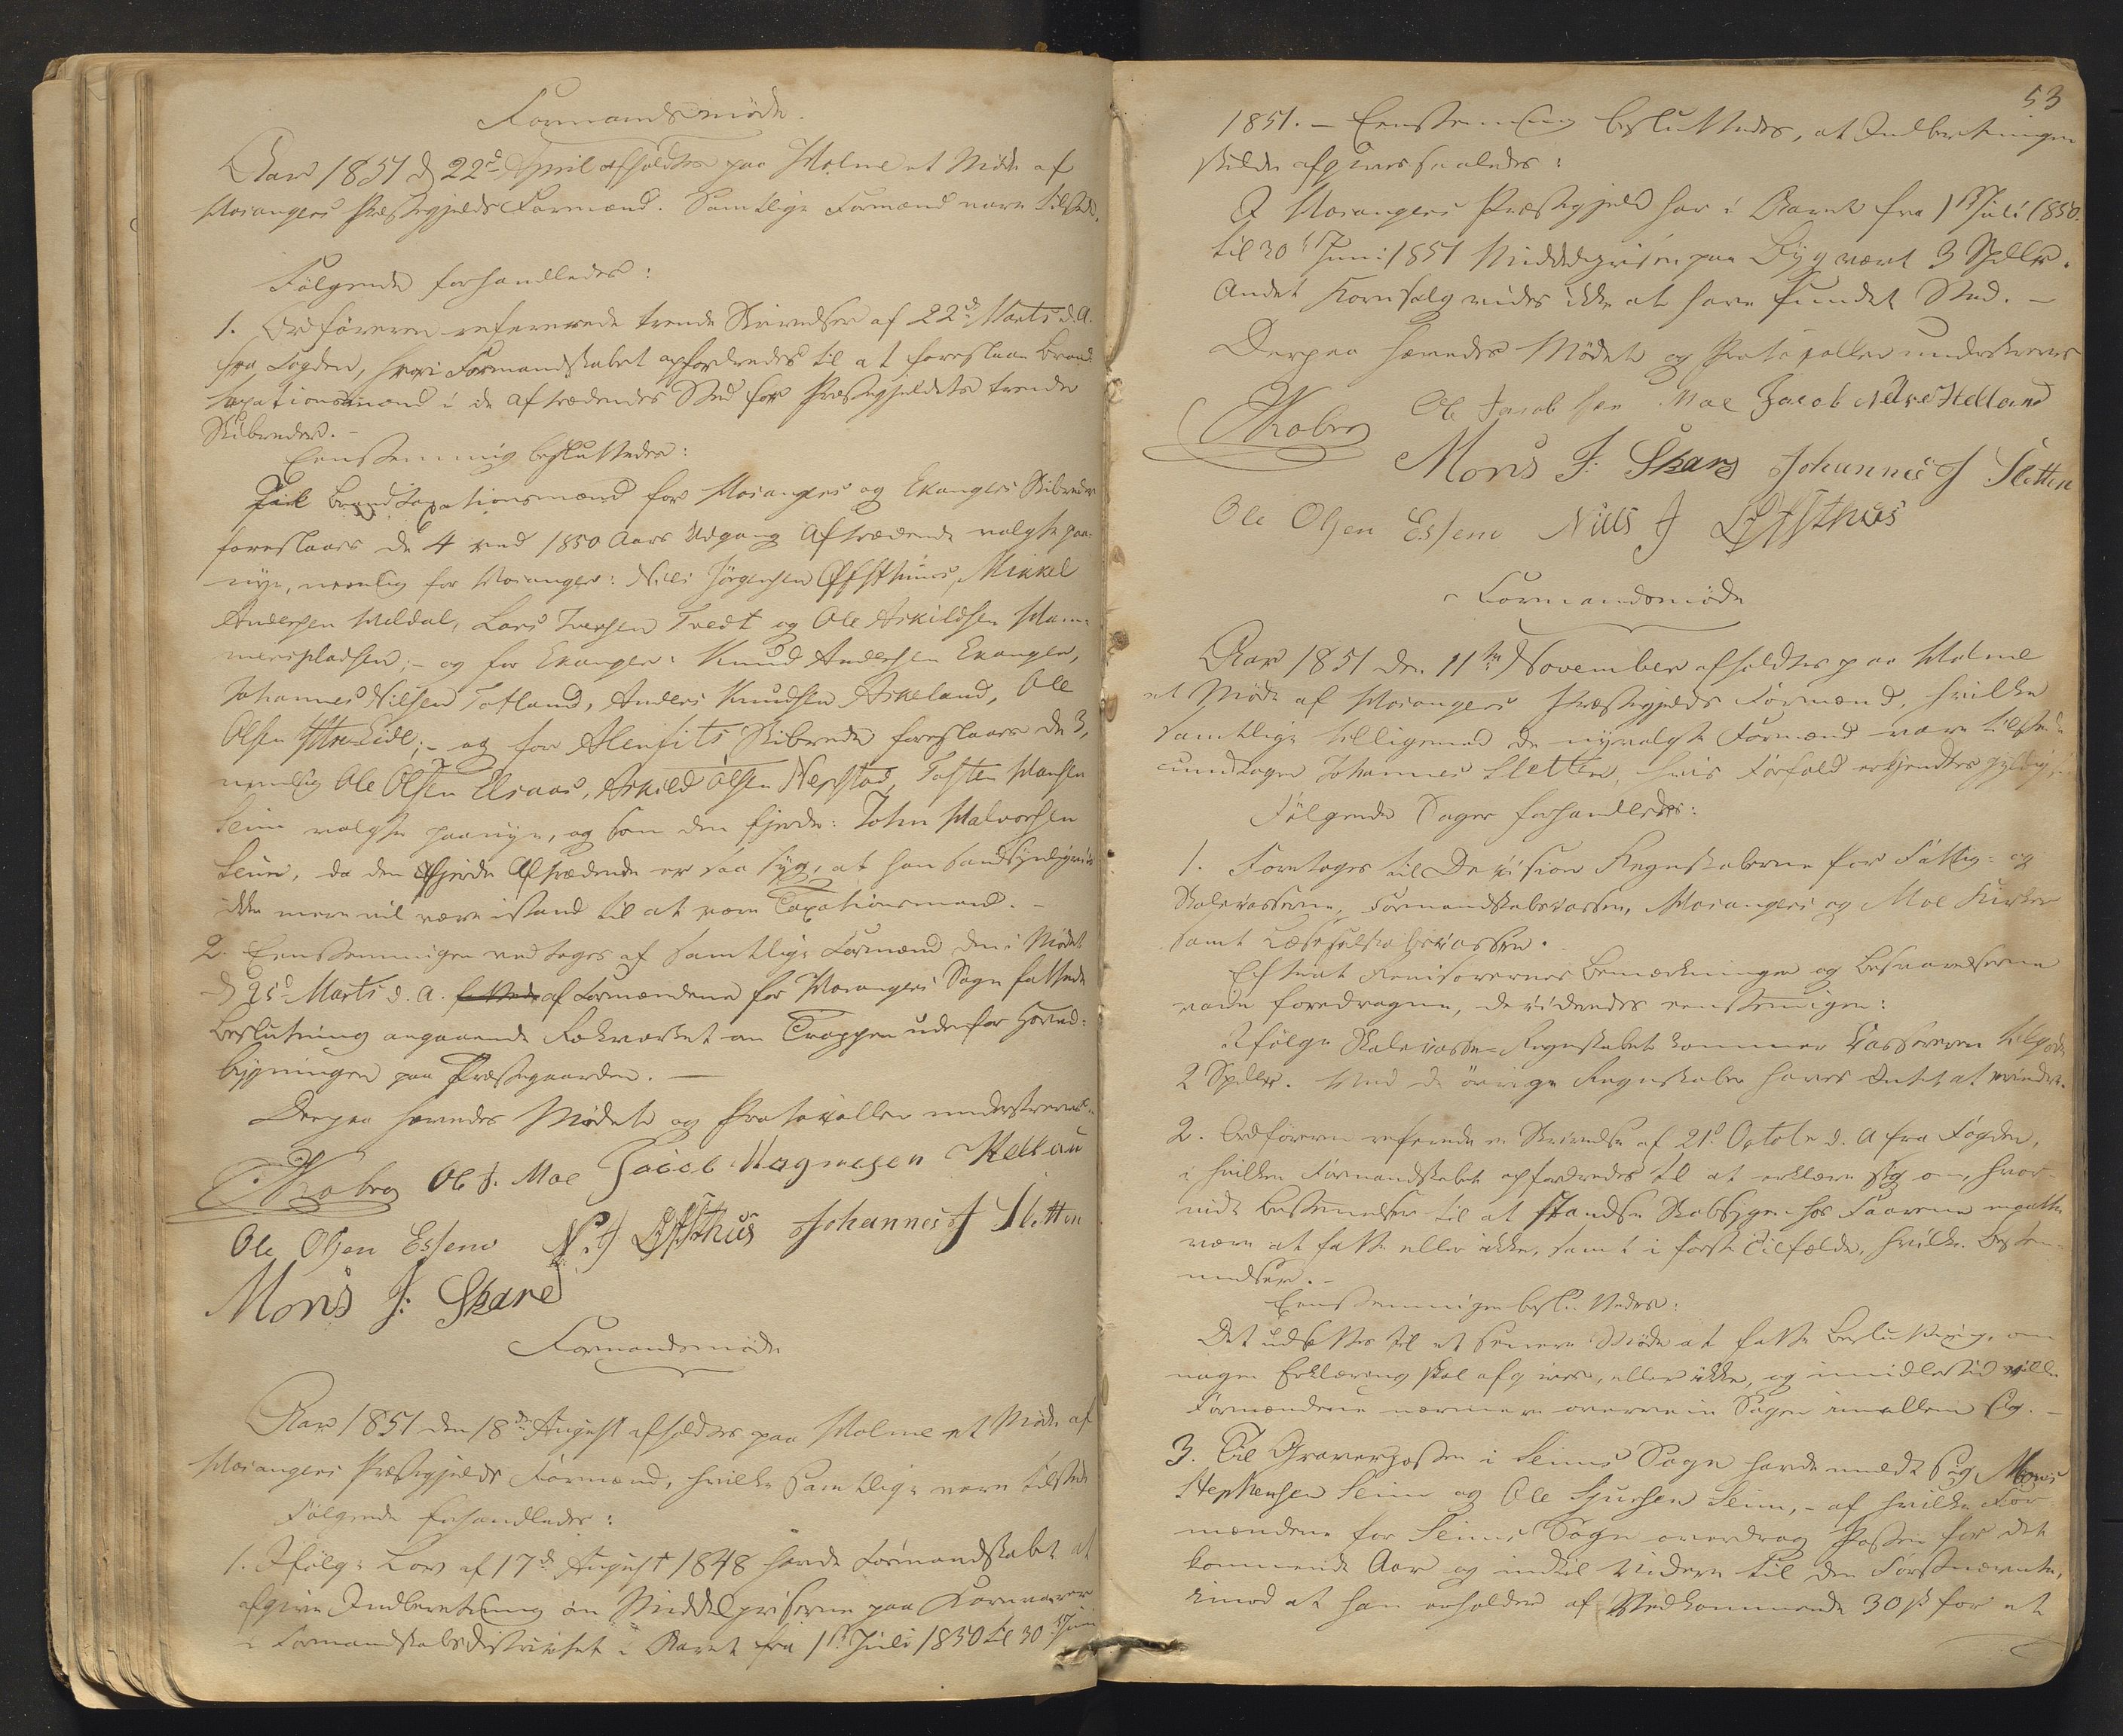 Formandsmøde.
Aar 1851 d. 22d April afholdtes paa Holme et Møde af
Hosangers Præstegjelds Formænd. Samtlige Formænd vare tilstede.
Følgende forhandledes:
1. Ordføreren refererede trende Skrivelser af 22d Marts d. A.
fra Fogden, hvori Formandskabet opfordredes til at foreslaae Brand-
taxationsmænd i de aftrædendes Sted for Præstegjeldets trende
Skibreder. –
Eenstemmig besluttedes:
Til Brandtaxationsmænd for Hosangers og Echangers Skibreder
foreslaaes de 4 ved 1850 Aars Udgang Aftrædende valgte paa-
nye, nemlig for Hosanger: Niels Jörgensen Øffsthuus, Mikkel
Andersen Meldal, Lars Iversen Tvedt og Ole Askildsen Ham-
merspladsen; – og for Ekanger: Knud Andersen Ekanger,
Johannes Nilsen Totland, Anders Knudsen Askeland, Ole
Olsen Ytre-Eide; – og for Alenfits Skibrede foreslaaes de 3,
nemlig Ole Olsen Elsaas, Askild Olsen Nepstad, Tosten Hansen
Seim valgte paanye, og som den fjerde: John Halvorsen
Seim, da den fjerde Aftrædende er saa syg, at han sandsynligviis
ikke mere vil være istand til at være Taxationsmand. –
2. Eenstemmigen vedtoges af samtlige Formænd den i Mødet
d. 25d Marts d. A. fattede af Formændene for Hosangers Sogn fattede
Beslutning angaaende Rækværket om Trappen udenfor Hoved-
bygningen paa Præstegaarden. –
Derpaa hævedes Mødet og Protokollen underskreves.
Ole J. Moe Jacob Magnesen Helland
Ole Olsen Essem N. J Øffsthus Johannes J Sletten
Mons J: Skare
Formandsmøde
Aar 1851 den 18de August afholdtes paa Holme et Møde af
Hosangers Præstegjelds Formænd, hvilke samtlige vare tilstede
Følgende forhandledes:
1. Ifølge Lov af 17de August 1848 havde Formandskabet at
afgive Indberetning om Middelpriserne paa Kornvarer
i Formandskabsdistriktet i Aaret fra 1ste Juli 1850 til 30te Juni
53
1851. – Eenstemmig besluttedes, at Indberetningen
skulde afgives saaledes:
I Hosangers Præstegjeld har i Aaret fra 1ste Juli 1850
til 30te Juni 1851 Middelprisen paa Byg været 3 Spdlr.
Andet Kornsalg vides ikke at have fundet Sted. –
Derpaa hævedes Mødet og Protokollen underskreves
Ole Jacobsen Moe Jacob Helland
Mons J: Skare Johannes J Sletten
Ole Olsen Essem Nills J Øffsthus
Formandsmøde
Aar 1851 den 11te November afholdtes paa Holme
et Møde af Hosangers Præstegjelds Formænd, hvilke
samtlige tilligemed de nyvalgte Formænd vare tilstede
undtagen Johannes Sletten, hvis Forfald erkjendtes gyldigt.
Følgende Sager forhandledes:
1. Foretoges til Decision Regnskaberne for Fattig- og
Skolekasserne, Formandskabskassen, Hosangers og Moe Kirker
samt Læseselskabskassen.
Efterat Revisorernes Bemærkninger og Besvarelserne
vare foredragne, decideredes eenstemmigen:
Ifølge Skolekasse-Regnskabet kommer Kassereren tilgode
2 Spdlr. Mod de övrige Regnskaber haves Intet at erindre.
2. Ordføreren refererede en Skrivelse af 21de October d. A fra Fogden,
i hvilken Formandskabet opfordredes til at erklære sig om, hvor-
vidt Bestemmelser til at standse Skabsyge hos Faarene maatte
være at fatte eller ikke, samt i første Tilfælde, hvilke Bestem-
melser. –
Eenstemmigen besluttedes:
Det udsættes til et senere Møde at fatte Beslutning, om
nogen Erklæring skal afgives, eller ikke, og imidlertid ville
Formændene nærmere overveie Sagen imellem sig. –
3. Til Graverposten i Seims Sogn havde meldt sig Mons
Stephensen Seim og Ole Sjursen Seim, – af hvilke For-
mændene for Seims Sogn overdrog Posten for det
kommende Aar og indtil Videre til den Førstnævnte,
imod at han erholder af Vedkommende 30 ß for et